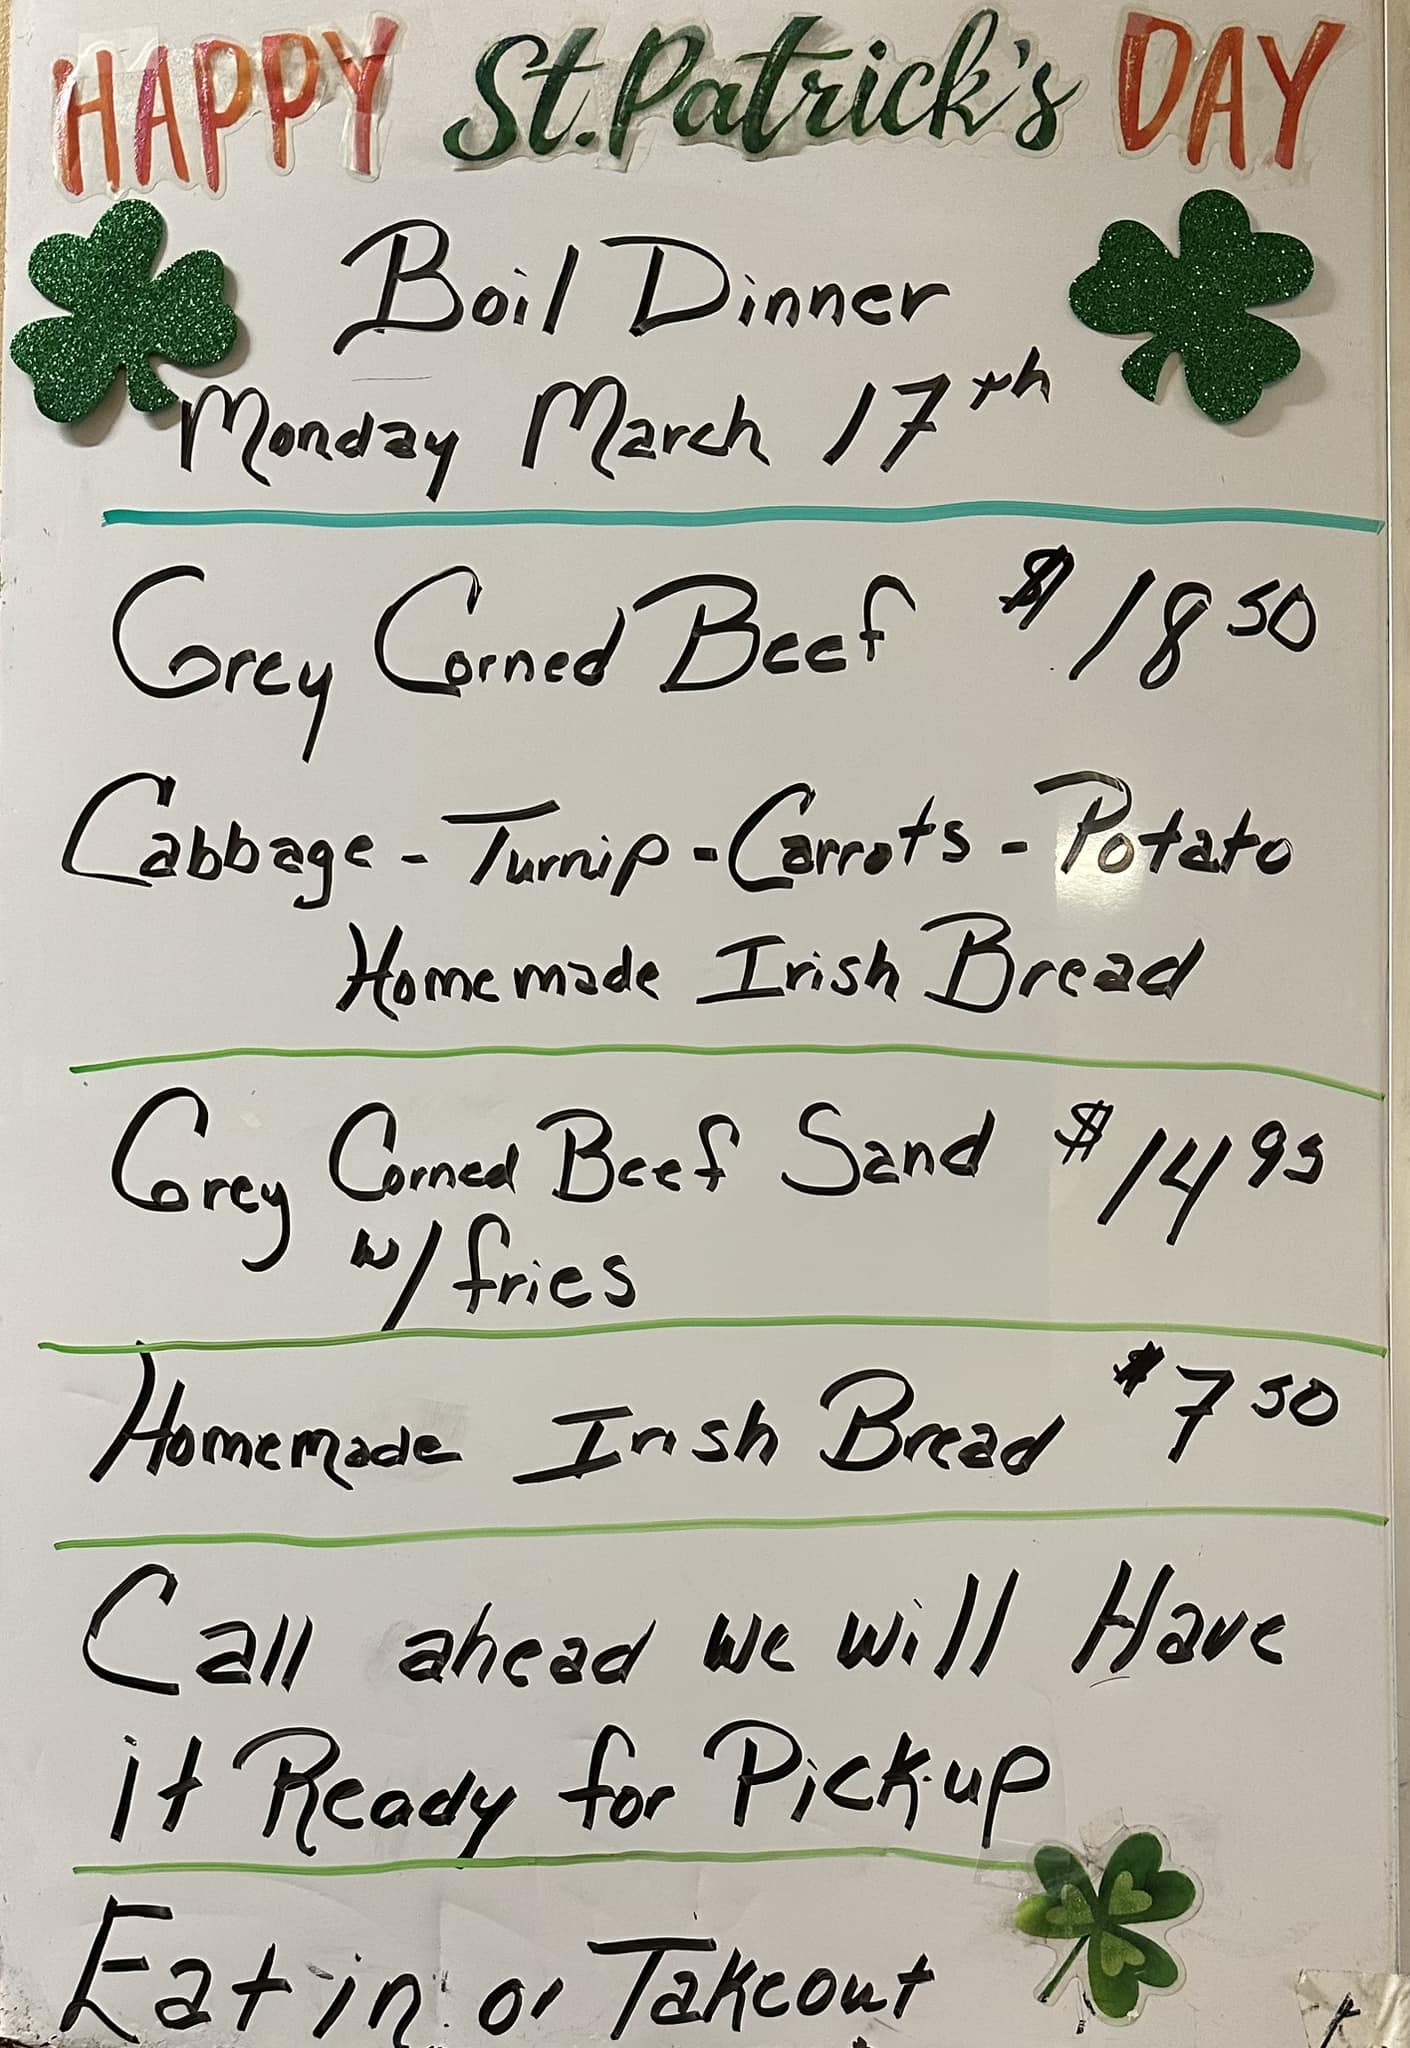 HAPPY St. Patrick's DAY
Boil Dinner
Monday March 17th
Grey Corned Beef $18 50
Cabbage - Turnip - Carrots - Potato
Homemade Irish Bread
Grey Corned Beef Sand $14 95
w/ fries
Homemade Irish Bread $7 50
Call ahead we will Have
it Ready for Pick-up
Eat in or Takeout